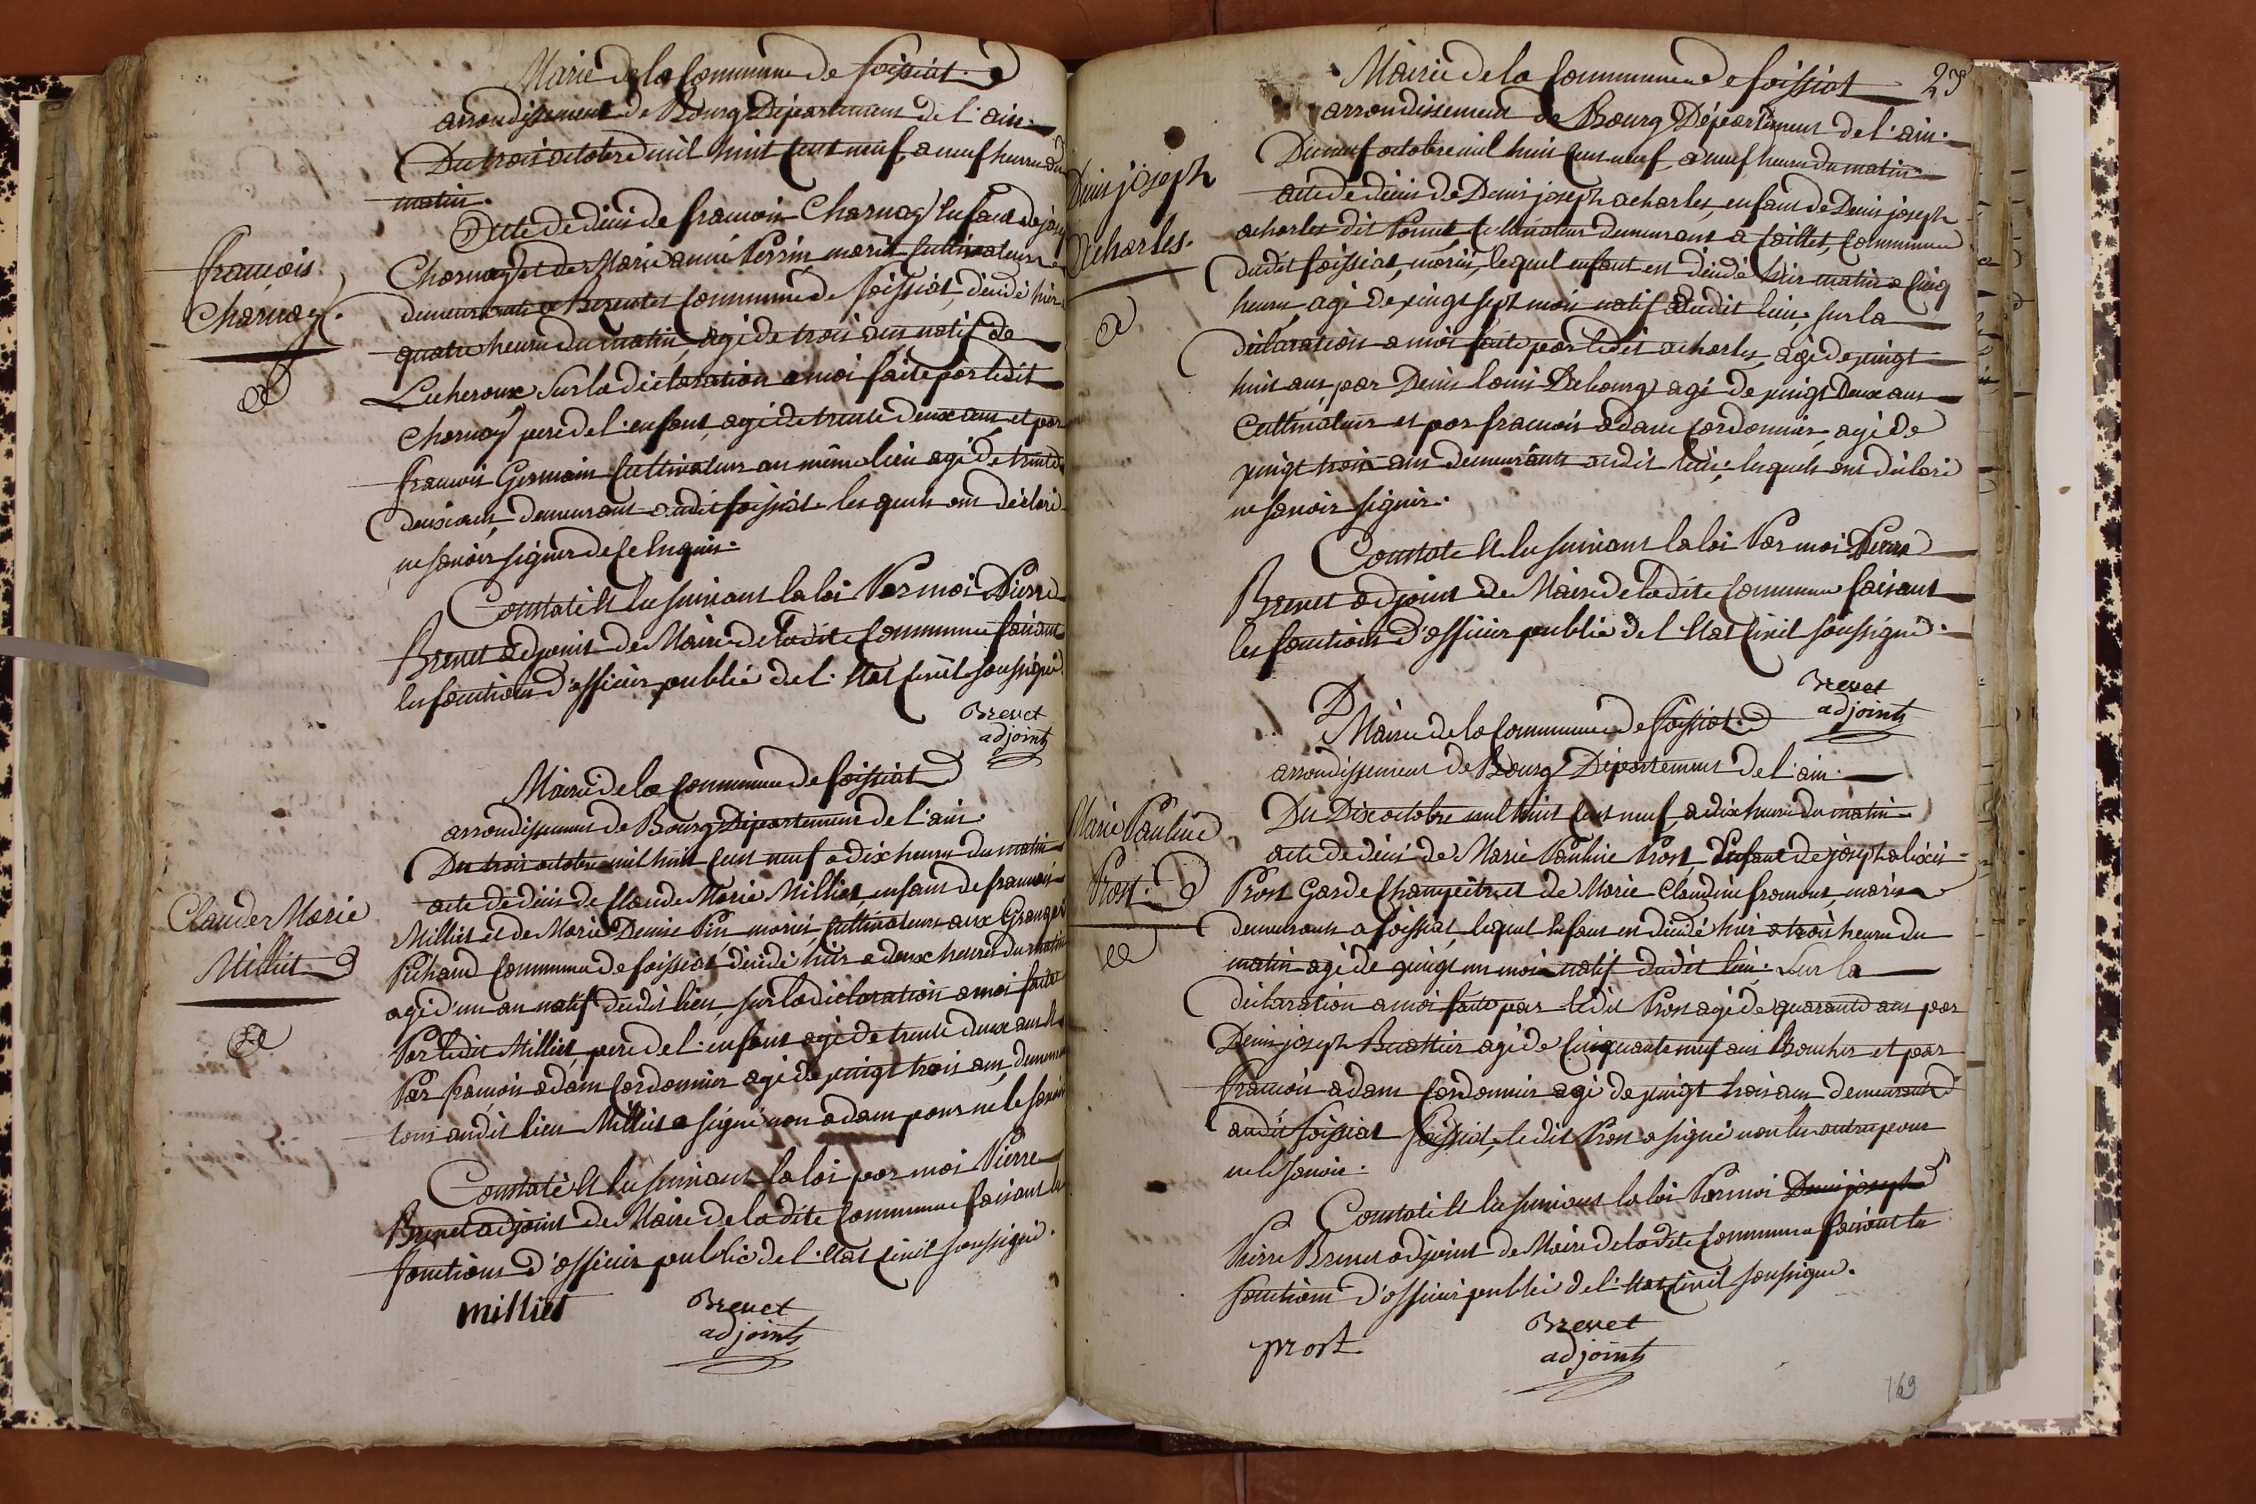 Mairie de la Commune de foissiat.
arrondissement de Bourg Département de l'ain.
Du trois octobre mil huit cent neuf, a neuf heures du
matin.
acte de décès de francois Charnay enfant de
Charnay et de Marie anne Perrin mariés cultivateurs
demeurants a commune de foissiat, décédé hier
quatre heures du matin, agé de trois ans natif de
Lecheroux sur la déclaration a moi faite par ledit
Charnay pere de l'enfant, agé de trente deux ans et par
francois Germain cultivateur au même lieu agé de trente
deux ans, demeurant audit foissiat lesquels ont déclaré
ne savoir signer de ce enquis.
Constaté et lu suivant la loi Par moi Pierre
Brevet adjoint de Maire de ladite Commune faisant
les fonctions d'officier public de l'etat civil soussigné.
Brevet
adjoint
francois
Charnay.
Mairie de la Commune de foissiat
arrondissement de Bourg Département de l'ain.
Du trois octobre mil huit cent neuf a dix heures du matin
acte de décès de Claude Marie Milliet, enfant de francois
Milliet et de Marie Denise Pin mariés, cultivateurs aux Granges
Pichaud commune de foissiat, décédé hier a deux heures du matin
agé d'un an natif dudit lieu, sur la déclaration a moi faite
Par ledit Milliet pere de l'enfant agé de trente deux ans et
Par francois adam Cordonnier agé de vingt trois ans, demeurant
tous audit lieu Milliet a signé non adam pour ne le savoir
Constaté et lu suivant la loi par moi Pierre
Brevet adjoint de Maire de ladite Commune faisant les
fonctions d'officier public de l'etat civil soussigné.
milliet
Brevet
adjoint
Claude Marie
Milliet
23
Mairie de la Commune de foissiat
arrondissement de Bourg Département de l'ain.
Du neuf octobre mil huit cent neuf a neuf heures du matin
acte de décès de Denis joseph acharles, enfant de Denis joseph
acharles dit cultivateur demeurant a Caillet, Commune
dudit foissiat, mariés, lequel enfant est décédé hier matin a cinq
heures, agé de vingt sept mois natif dudit lieu, sur la
déclaration a moi faite par ledit acharles, agé de vingt
huit ans, par Denis louis Debourg agé de vingt deux ans
Cultivateur et par francois adam cordonnier, agé de
vingt trois ans demeurants audit lieu, lesquels ont déclaré
ne savoir signer.
Constaté et lu suivant la loi Par moi Pierre
Brevet adjoint de Maire de ladite Commune faisant
les fonctions d'officier public de l'Etat civil soussigné.
Brevet
adjoint
Denis joseph
acharles.
Mairie de la Commune de foissiat.
arrondissement de Bourg Département de l'ain.
Du Dix octobre mil huit cent neuf, a dix heures du matin
acte de décès de Marie Pauline Prost Enfant de joseph alexis
Prost Garde Champêtre et de Marie Claudine fromont, mariés
demeurants a foissiat, lequel enfant est décédé hier a trois heures du
matin agé de vingt un mois natif dudit lieu. Sur la
déclaration a moi faite par ledit Prost agé de quarante ans par
Denis joseph Buathier agé de cinquante neuf ans Boucher et par
francois adam cordonnier agé de vingt trois ans demeurants
audit foissiat foissiat, ledit Prost a signé non les autres pour
ne le savoir.
Constaté et lu suivant la loi Par moi Denis joseph
Pierre Brevet adjoint de Maire de ladite Commune faisant les
fonctions d'officier public de l'etat civil soussigné.
prost
Brevet
adjoint
Marie Pauline
Prost.
169